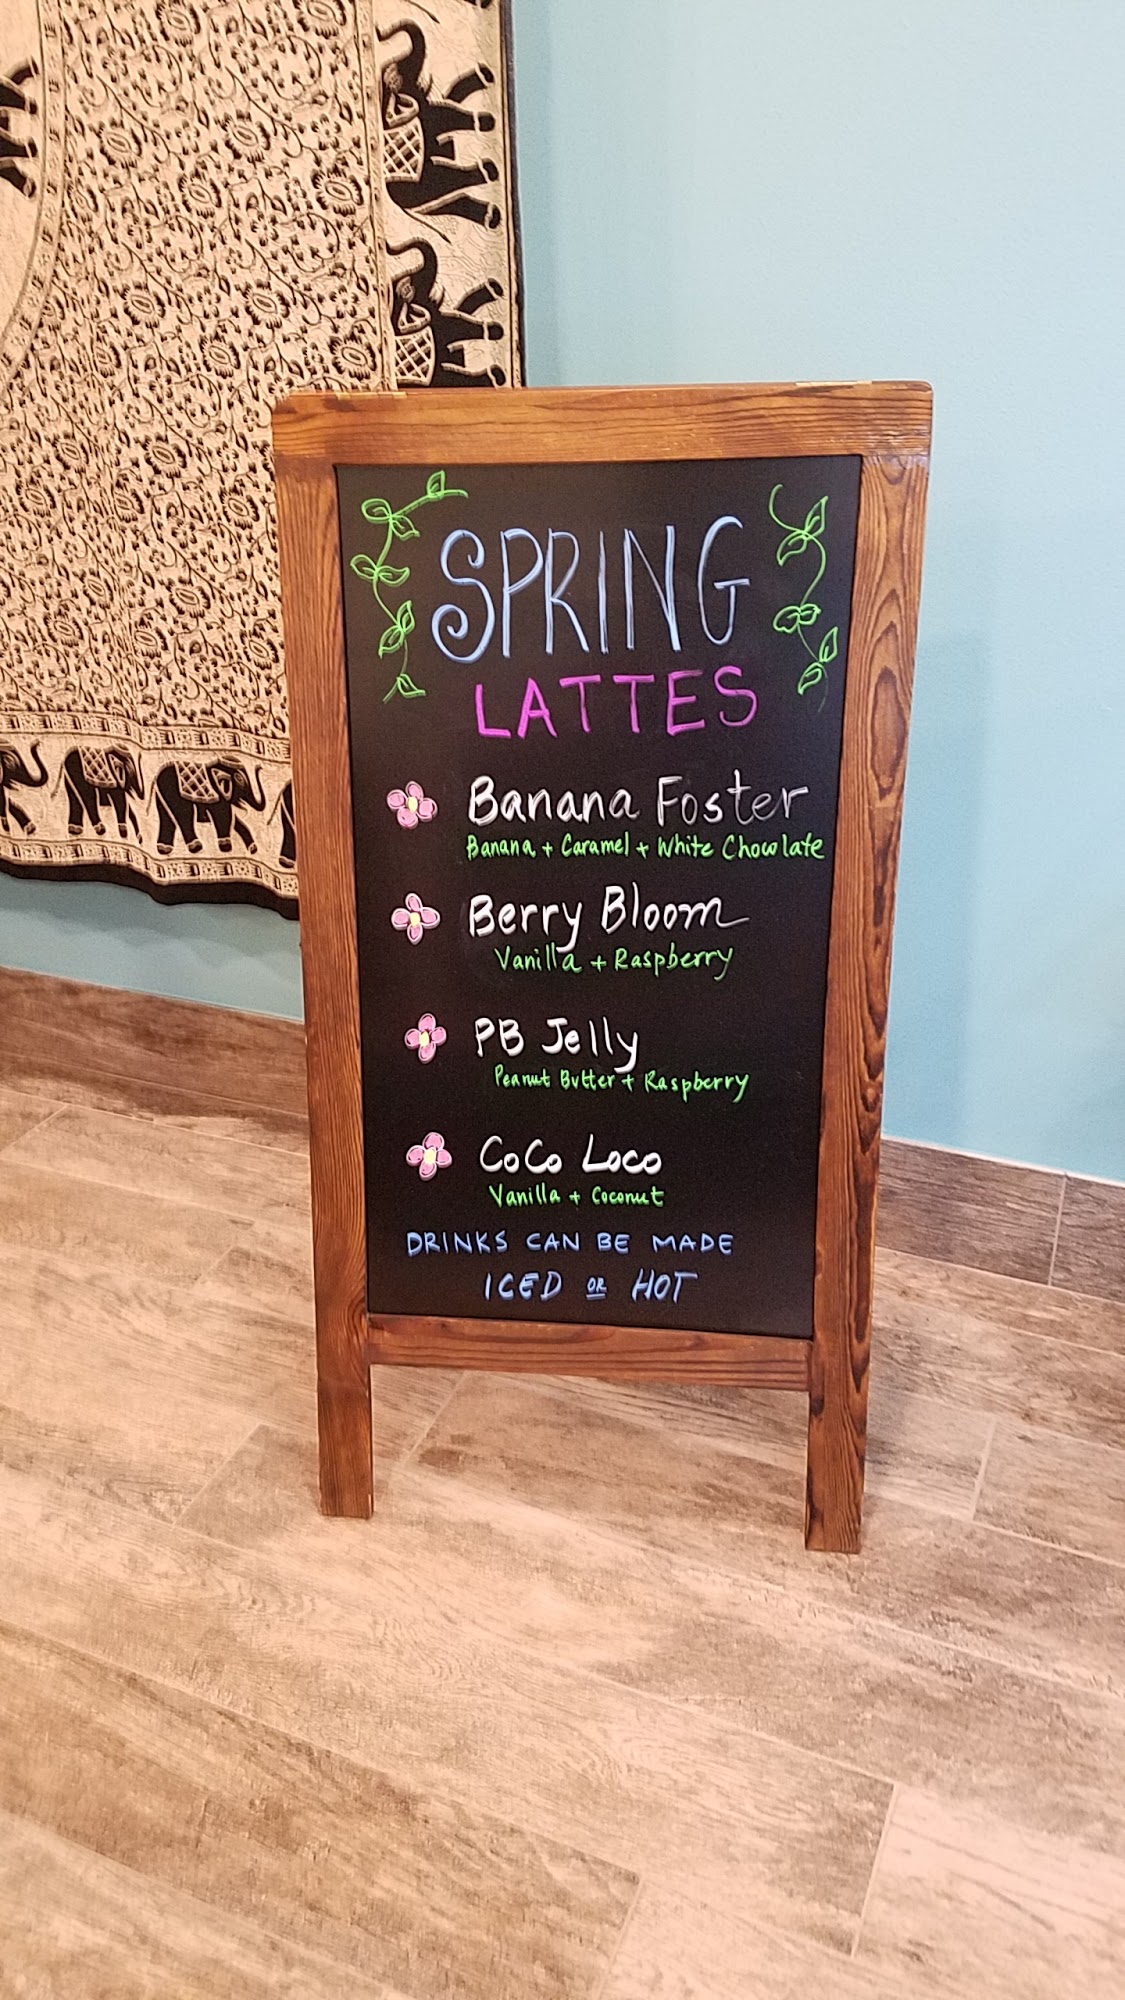 SPRING
LATTES
Banana Foster
Banana + Caramel + White Chocolate
Berry Bloom
Vanilla + Raspberry
PB Jelly
Peanut Butter + Raspberry
CoCo Loco
Vanilla + Coconut
DRINKS CAN BE MADE
ICED OR HOT